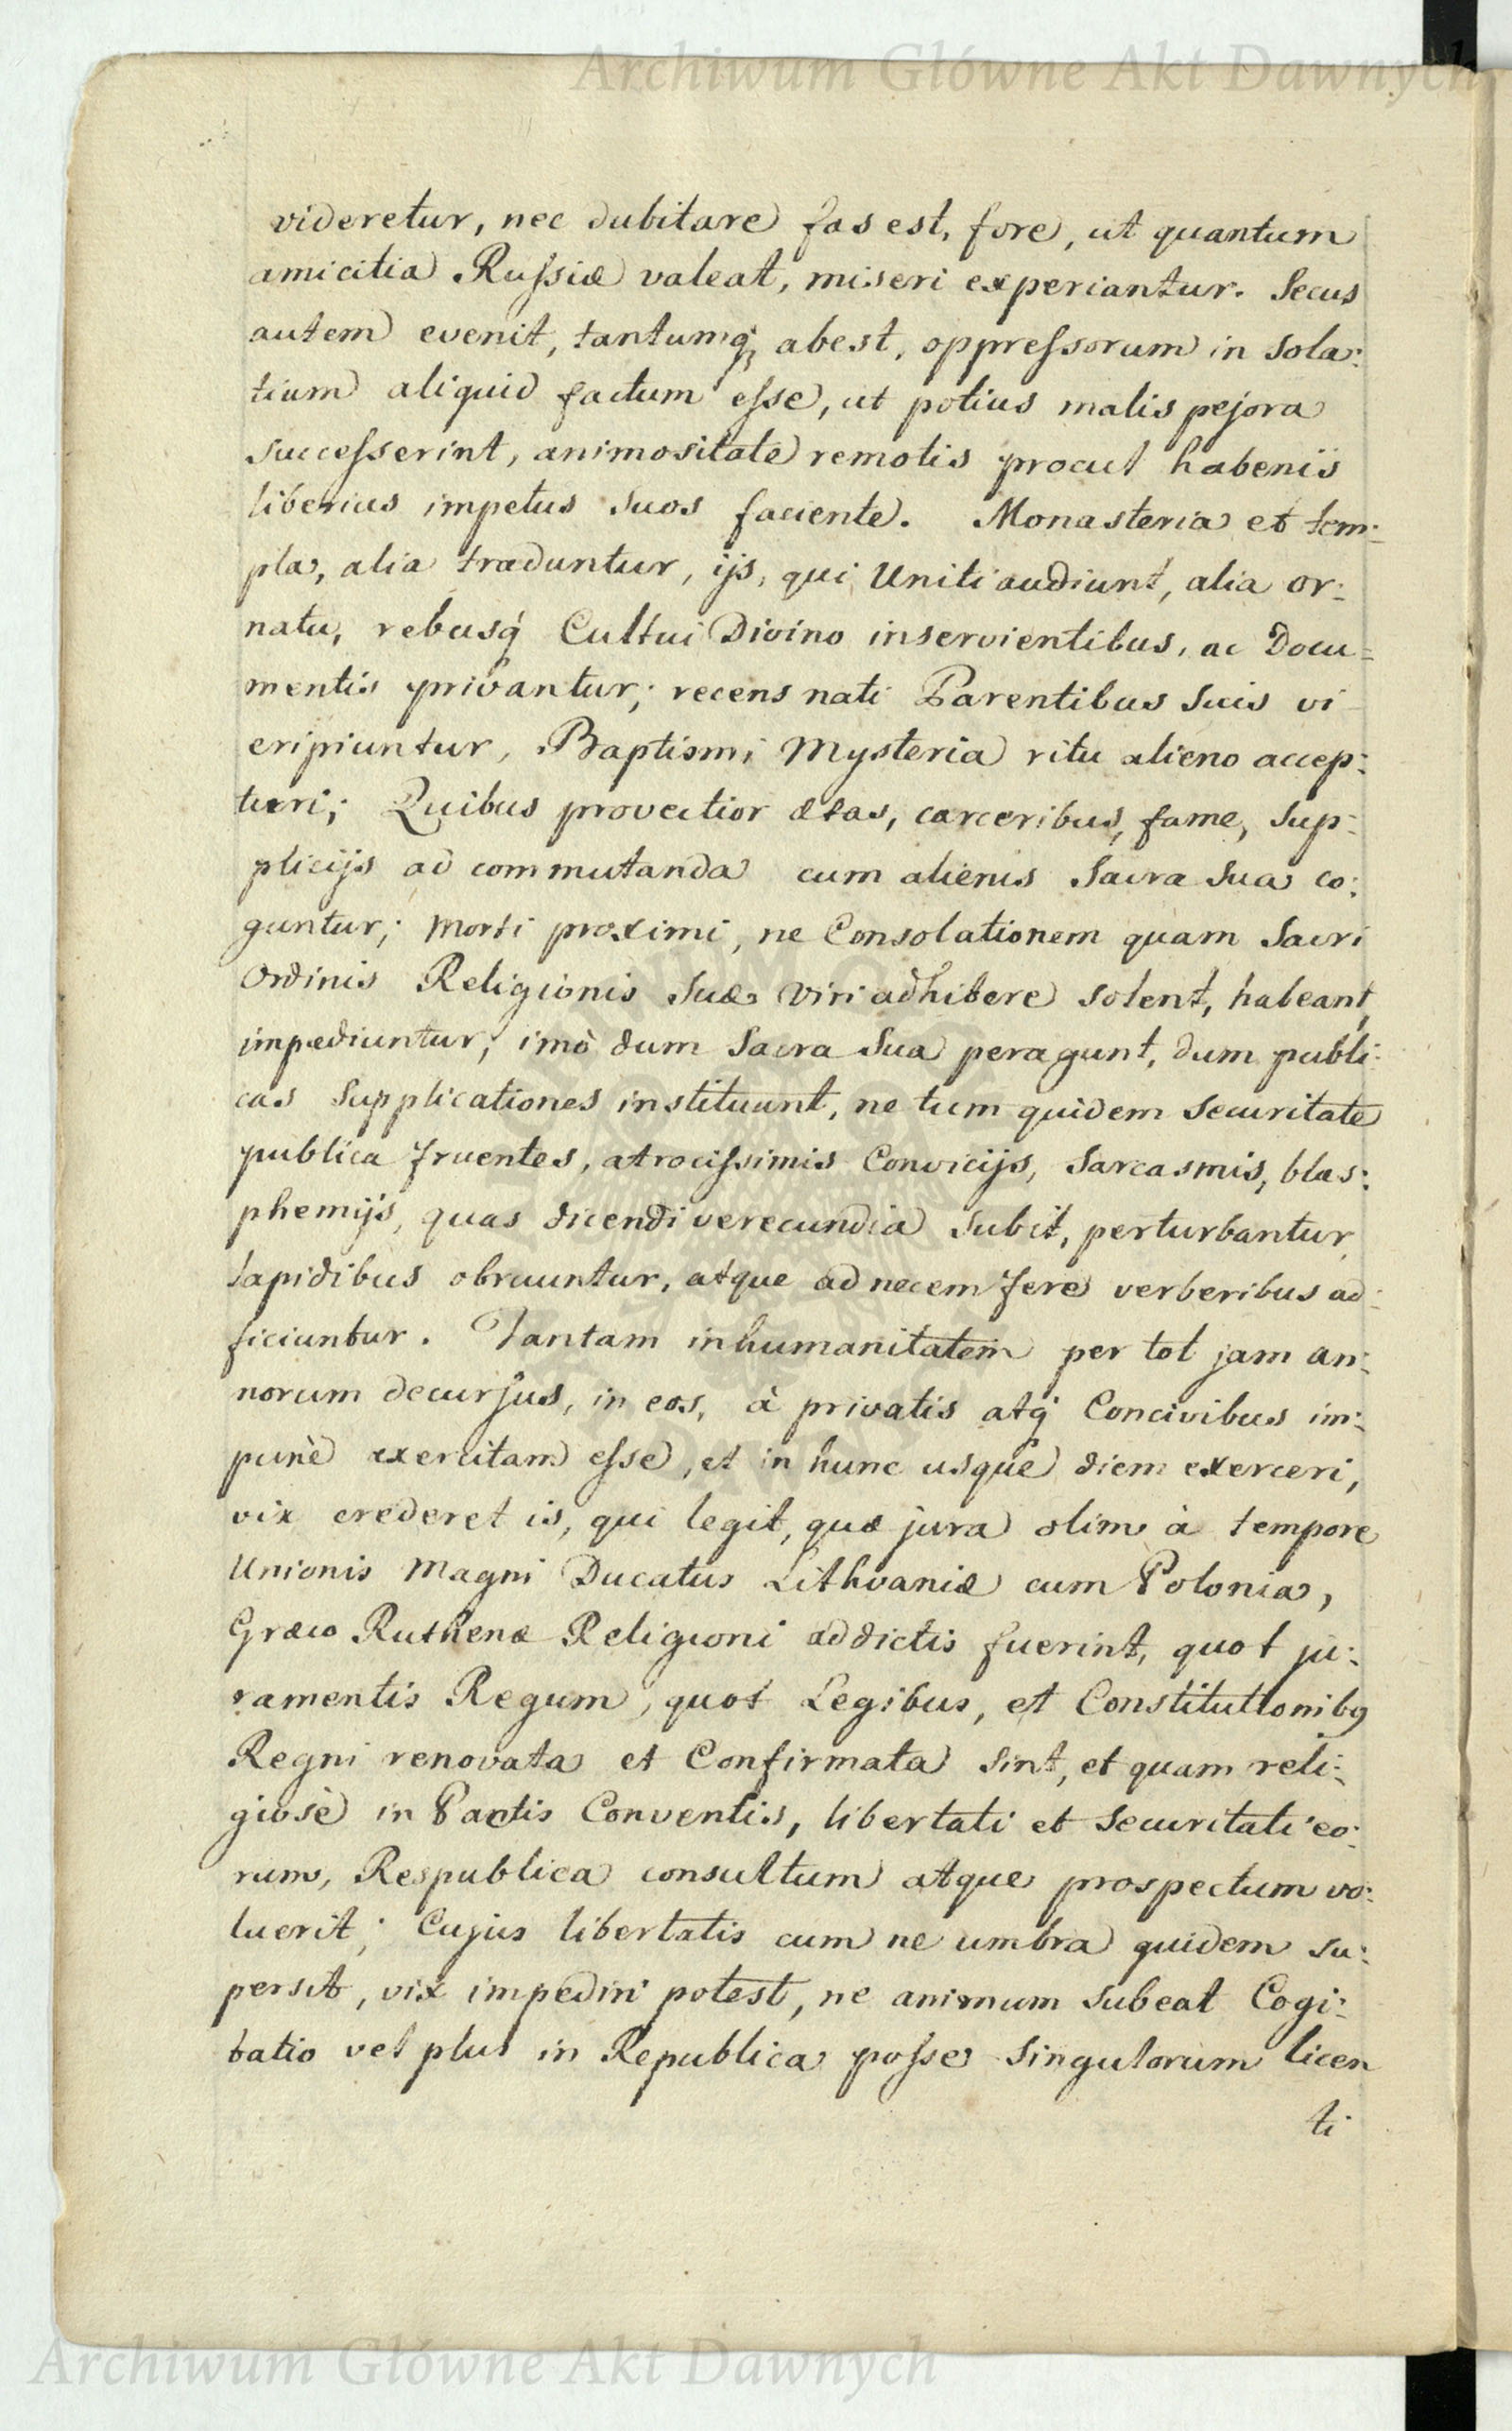 Archiwum Główne Akt Dawnych
videretur, nec dubitare fas est, fore, ut quantum
amicitia Russiæ valeat, miseri experiantur. Secus
autem evenit, tantumq; abest, oppressorum in Sola:
tium aliquid factum esse, ut potius malis pejora
successerint, animositate remotis procul habenis
liberius impetus suos faciente. Monasteria et tem:
pla, alia traduntur, ijs, qui Uniti audiunt, alia or:
natu, rebusq́ Cultui Divino inservientibus, ac Docu=
mentis privantur; recens nati Parentibus Suis vi
eripiuntur, Baptismi Mysteria ritu alieno accep:
turi; Quibus provectior ætas, carceribus, fame, Sup:
plicijs ad commutanda cum alienis Sacra Sua co:
guntur; Morti proximi, ne Consolationem quam Sacri
Ordinis Religionis Suæ Viri adhibere solent, habeant,
impædiuntur; imò dum Sacra Sua peragunt, dum publi:
cas Supplicationes instituunt, ne tum quidem Securitate
publica fruentes, atrocissimis Convicijs, Sarcasmis, blas:
phemijs, quas dicendi verecundia Subit, perturbantur,
lapidibus obruuntur, atque ad necem fere verberibus ad:
ficiuntur. Tantam inhumanitatem per tot jam an:
norum decursus, in eos, à privatis atq́ Concivibus im:
punè exercitam esse, et in hunc usque diem exerceri,
vix crederet is, qui legit, quæ jura olim à tempore
Unionis Magni Ducatus Lithvaniæ cum Polonia,
Græco Ruthenæ Religioni addictis fuerint, quot ju:
ramentis Regum, quot Legibus, et Constitutionibq
Regni renovata et Confirmata sint, et quam reli:
giosè in Pactis Conventis, libertati et Securitati eo:
rum, Respublica consultum atque prospectum vo:
luerit; Cujus libertatis cum ne umbra quidem su:
persit, vix impediri potest, ne animum Subeat Cogi:
tatio vel plus in Republica posse Singulorum licen
ti
Archiwum Główne Akt Dawnych